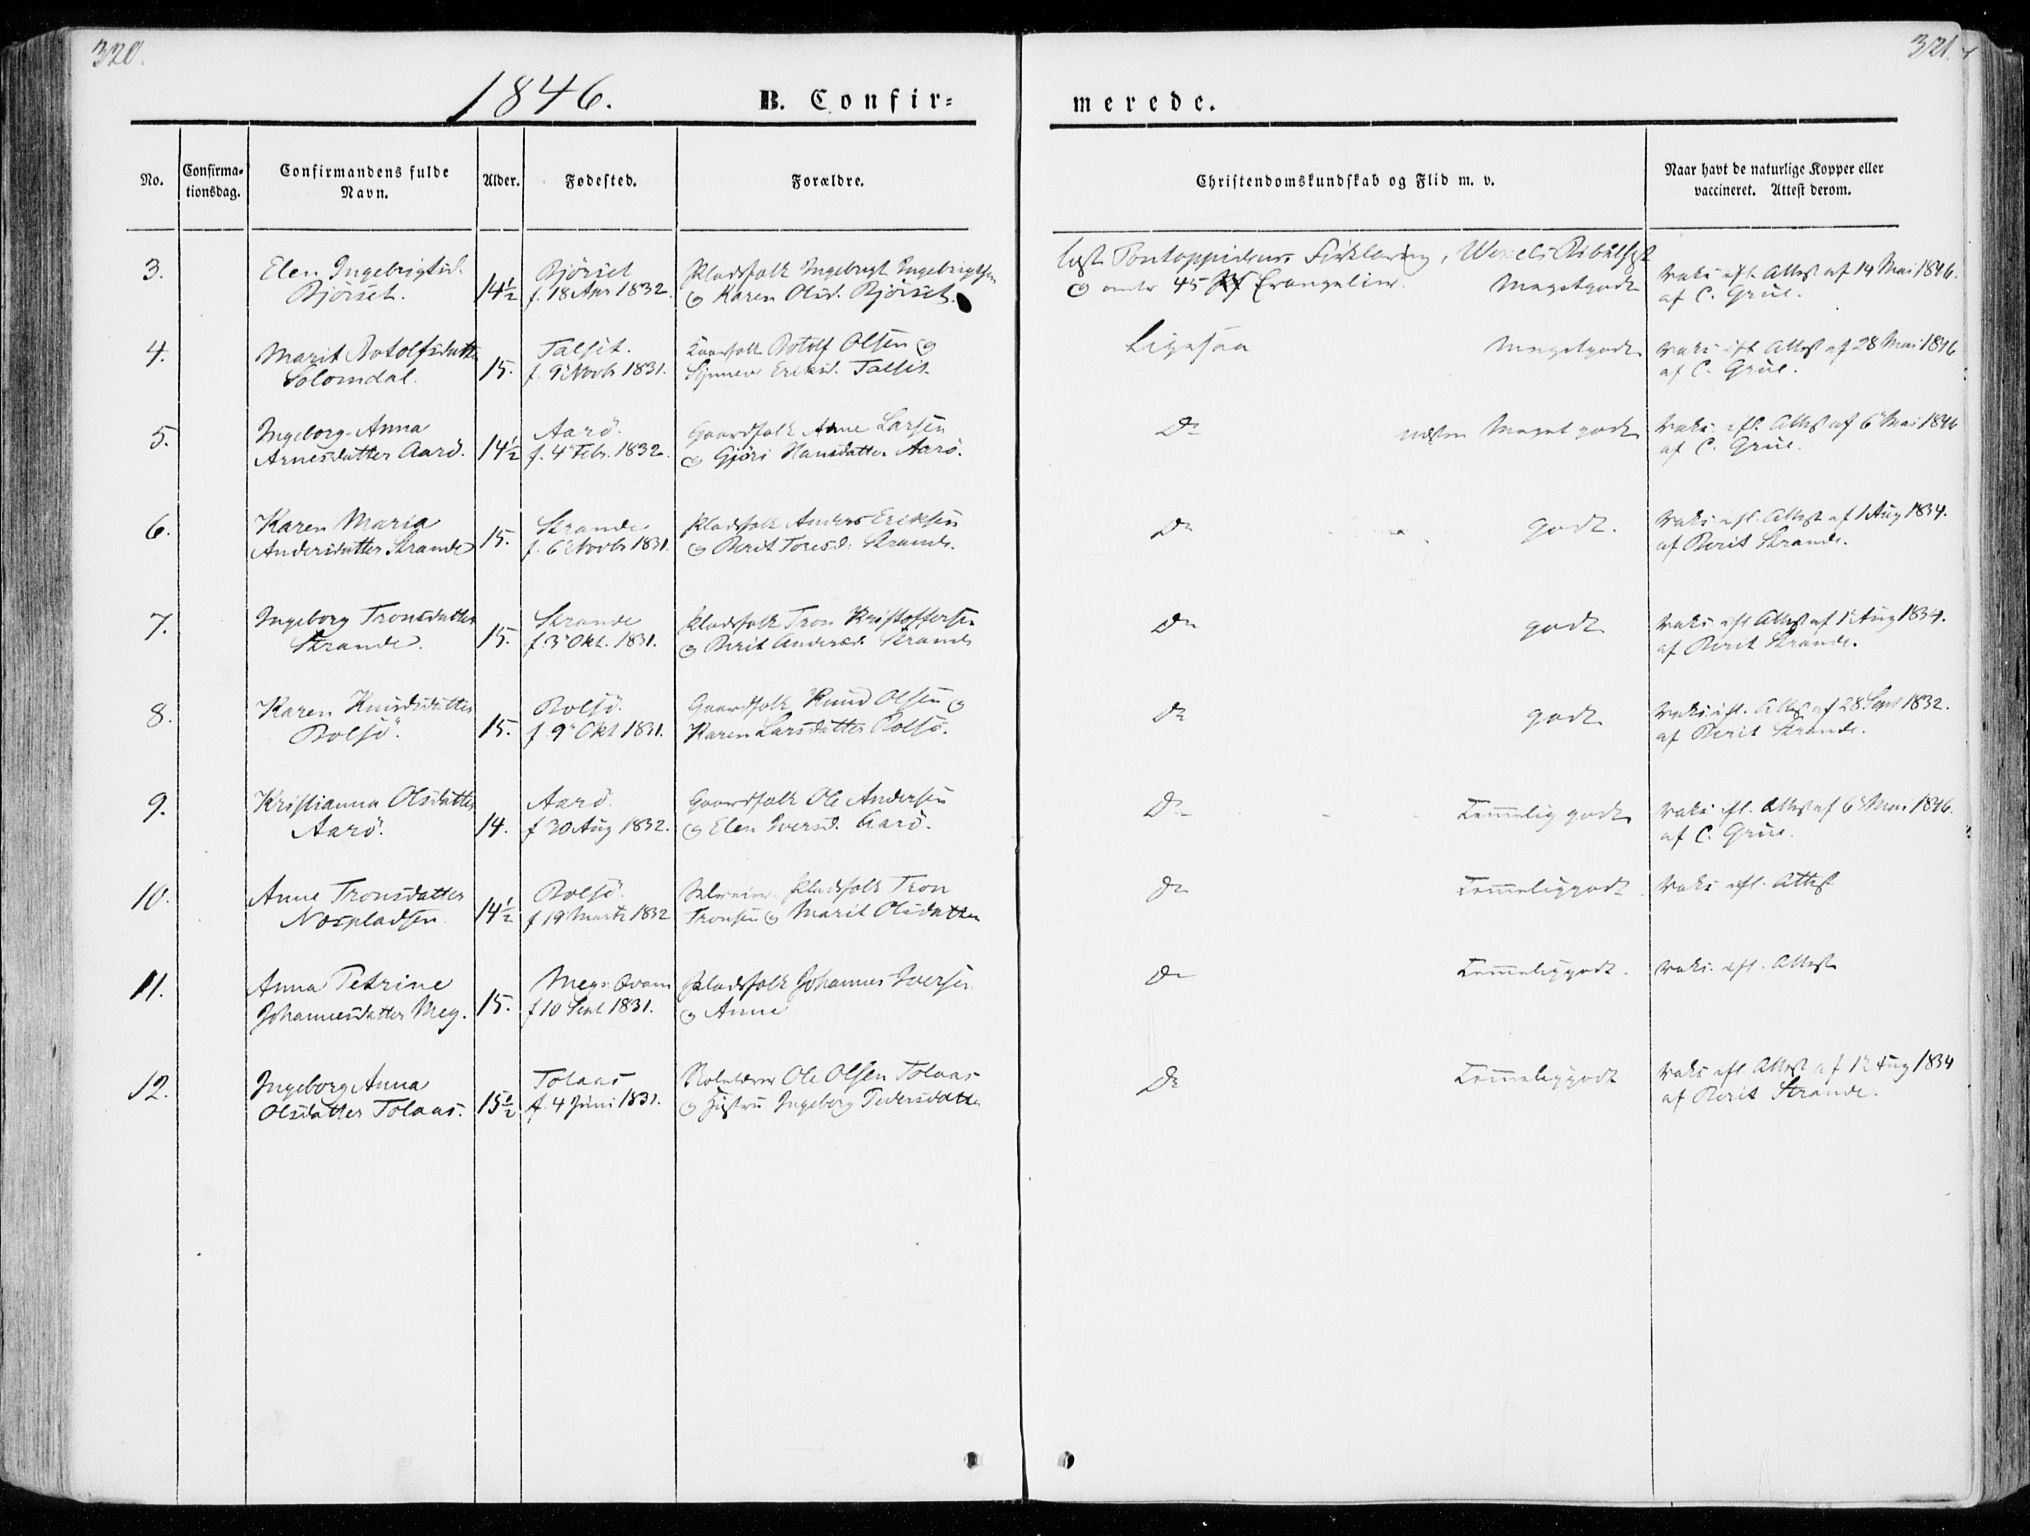 320.
321.
1846.
B. Confir=
merede.
No.
Confirma=
tionsdag.
Confirmandens fulde
Navn.
Alder.
Fødested.
Forældre.
Christendomskundskab og Flid m. v.
Naar havt de naturlige Kopper eller
vaccineret. Attest derom.
3.
Elen Ingebrigtsd.
Bjørset.
14½
Bjørset
f. 18 Apr 1832.
Pladsfolk Ingebrigt Ingebrigtsen
og Karen Olsd. Bjørset.
læst Pontoppidans Forklaring,
og 45 Evangelier. Megetgodt
Vaks. eft. Attest af 14 Mai 1846.
af C. Grüe.
4.
Marit Botolfsdatter
Solomdal.
15.
Talset.
f. 9 Novbr 1831.
Botolf Olsen og
Synneve Eriksd. Talset.
Ligesaa Megetgodt
Vaks. eft. Attest af 28 Mai 1846
af C. Grüe.
5.
Ingeborg Anna
Arnesdatter Aarö.
14½
Aarö.
f. 4 Febr. 1832.
Gaardfolk Arne Larsen
og Gjöri Hansdatter Aarö.
Do næsten Meget godt
Vaks. eft. Attest af 6 Mai 1846
af C. Grüe.
6.
Karen Maria
Andersdatter Strande
15.
Strande
f. 6 Novbr 1831.
Pladsfolk Anders Eriksen
og Berit Toresd. Strande.
Do godt.
Vaks. eft. Attest af 1 Aug 1834.
af Berit Strande.
7.
Ingeborg Tronsdatter
Strande.
15.
Strande
f. 3 Okt. 1831.
Pladsfolk Tron Kristoffersen
og Berit Andersd. Strande
Do godt
Vaks. eft. Attest af 1 Aug 1834.
af Berit Strande.
8.
Karen Knudsdatter
Bolsö.
15.
Bolsö.
f. 9 Okt 1831.
Gaardfolk Knud Olsen og
Karen Larsdatter Bolsö.
Do godt
Vaks. eft. Attest af 28 Sept 1832.
af Berit Strande.
9.
Kristianna Olsdatter
Aarö.
14.
Aarö.
f 30 Aug 1832.
Gaardfolk Ole Andersen
og Elen Iversd. Aarö.
Do Temmelig godt
Vaks. eft. Attest af 6 Mai 1846.
af C. Grüe.
10.
Anne Tronsdatter
Næspladsen
14½
Bolsö
f 19 Marts 1832
Pladsfolk Tron
Tronsen og Marit Olsdatter
Do Temmeliggodt.
Vaks. eft. Attest
11.
Anna Petrine
Johannesdatter Meg.
15.
Megs-Qvam
f 10 Sept 1831.
Pladsfolk Johannes Iversen
og Anne
Do Temmeliggodt.
Vaks. eft. Attest
12.
Ingeborg Anna
Olsdatter Tolaas.
15½
Tolaas
f. 4 Juni 1831.
Ole Olsen Tolaas
og Hustru Ingeborg Pedersdatter
Do Temmeliggodt
Vaks. eft. Attest af 12 Aug 1834
af Berit Strande.